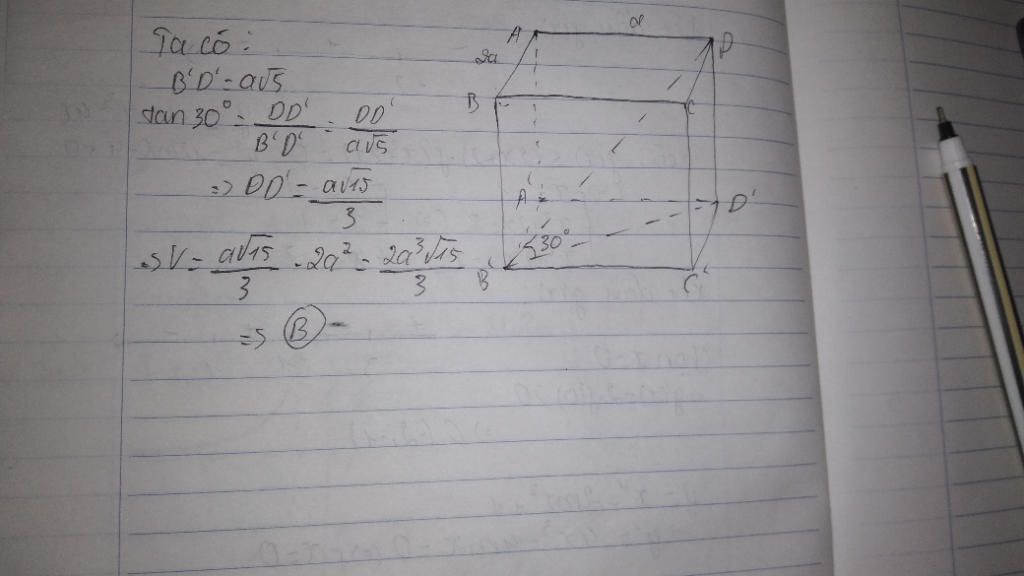 Ta có:
B'D' = a√5
tan 30° = DD'/B'D' = DD'/a√5
=> DD' = a√15/3
=> V = a√15/3 . 2a² = 2a³√15/3
=> B
A
a
D
2a
B
C
A'
D'
30°
B'
C'